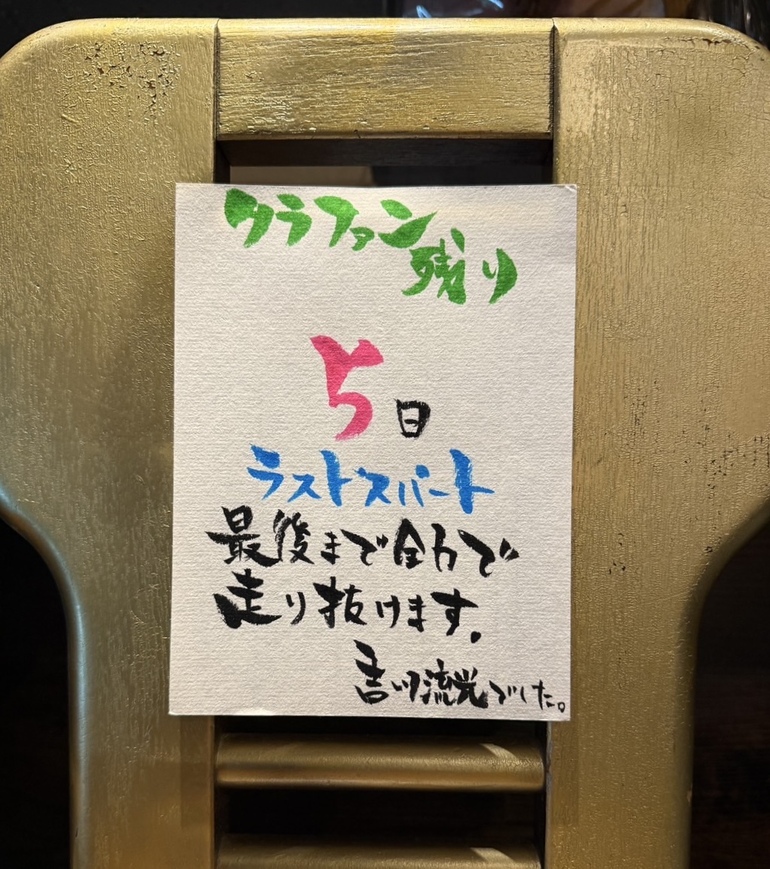 クラファン
残り
5日
ラストスパート
最後まで全力で
走り抜けます。
吉川流光でした。